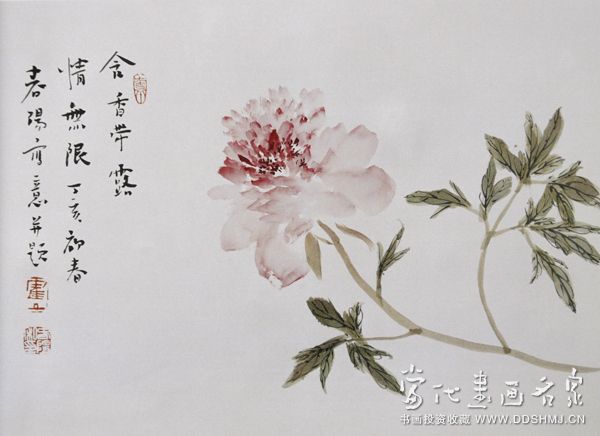 含香帶露
情無限丁亥初春
春陽寫意并題
當代書画名家
书画投资收藏 WWW.DDSHMJ.CN